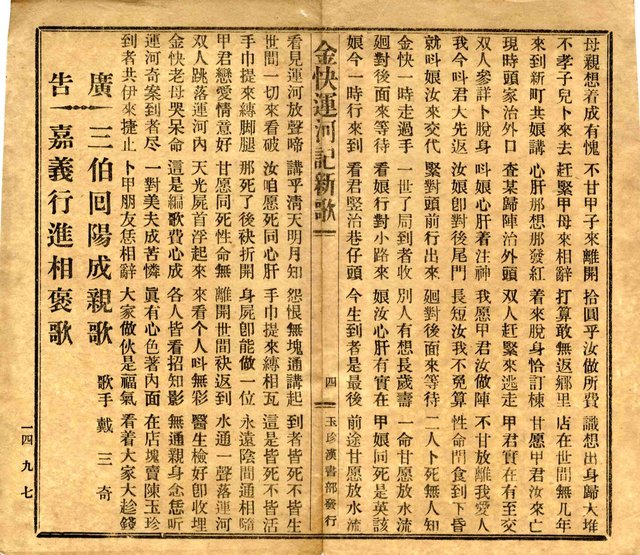 母親想着成有愧 不甘甲子來離開 拾圓乎汝做所費 識想出身歸大堆
不孝子兒卜來去 赶緊甲母來相辭 打算敢無返鄉里 店在世間無几年
來到新町共娘講 心肝那想那發紅 着來脫身恰訂棟 甘愿甲君汝來亡
現時頭家治外口 查某歸陣治外頭 双人赶緊來逃走 甲君實在有至交
双人參詳卜脫身 呌娘心肝著注神 我愿甲君汝做陣 不甘放離我愛人
我今呌君大先返 汝娘卽對後尾門 長短汝我不免算 性命同食到下昏
就呌娘汝來交代 緊對頭前行出來 廻對後面來等待 二人卜死無人知
金快一時走過手 一世了局到者收 別人有想長歲壽 一命甘愿放水流
廻對後面來等待 看娘行對小路來 娘汝心肝有實在 甲娘同死是英該
娘今一時行來到 看君竪治巷仔頭 今生到者是最後 前途甘愿放水流
金快運河記新歌 四 玉珍漢書部發行
看見運河放聲啼 講乎淸天明月知 怨恨無塊通講起 到者皆死不皆生
世間一切來看破 汝咱愿死同心肝 手巾提來縛相瓦 這是皆死不皆活
手巾提來縛脚腿 那死了後袂折開 身屍卽能做一位 永遠陰間通相隨
甲君戀愛情意好 甘愿同死性命無 離開世間袂返到 水通一聲落運河
双人跳落運河內 天光屍首浮起來 來看个人呌無彩 醫生檢好卽收埋
金快老母哭呆命 這是編歌費心成 各人皆看招知影 無通親身念恁听
運河奇案到者尽 一對美夫成苦憐 眞有心色著內面 在店塊賣陳玉珍
到者共伊來捶止 卜甲朋友恁相辭 大家做伙是福氣 看着大家大趁錢
廣告 三伯回陽成親歌
嘉義行進相褒歌
歌手 戴三奇
一四九七